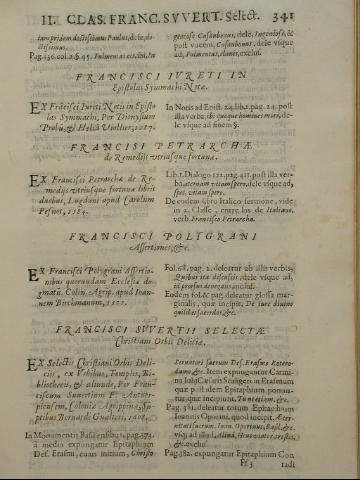 II. CLAS. FRANC. SVVERT. Select. 341
tam pridem doctissimus Paulus, dele, do-
ctissimus.
Pag. 436. col. 2. §. 45.
geniose Casaubonus, dele, Ingeniose, &
post vocem, Casaubonus, dele vsque
ad, exclus.
FRANCISCI IVRETI IN
Epistolas Symmachi Notæ.
EX Frācisci Iureti Notis in Episto
las Symmachi, Per Dionysium
Probū, & Heliā Viollier,
In Notis ad Epist. 24. lib. 1. pag. 24. post
illa verba, ibi quoque homines mori, de-
le vsque ad finem §.
FRANCISCI PETRARCHÆ
de Remedijs vtriusque fortunæ.
EX Francisci Petrarchæ de Re-
medijs vtriusque fortunæ libris
duobus, Lugduni apud Carolum
Pesnot, 1584.
Lib. 1. Dialogo 122. pag. 411. post illa ver-
ba, æternam vitam spero, dele vsque ad,
spei, vitam spero.
De eodem libro Italico sermone, vide
in 2. Classe, entre los de Italiano,
verb. Francisco Petrarcha.
FRANCISCI POLYGRANI
Assertiones, &c.
EX Francisci Polygrani Assertio-
nibus quorundam Ecclesiæ do-
gmatū. Colon. Agrip. apud Ioan-
nem Birckmannum,
Fol. 68. pag. 2. deleatur ab illa verbis,
Quibus ita discussis, dele vsque ad,
Eodem fol. & pag. deleatur glossa mar-
ginalis, quæ incipit, De iure diuino
FRANCISCI SVVERTII SELECTÆ
Christiani Orbis Deliciæ.
EX Selectis Christiani Orbis Deli-
cijs, ex Vrbibus, Templis, Bi-
bliothecis, & aliunde, Per Fran-
ciscum Suuertium F. Antuer-
piensem, Coloniæ Agrippinæ, Su-
ptibus Bernardi Gualteri, 1608.
In Monumentis Basiliensibus, pag. 374.
à medio expungatur Epitaphium
Des. Erasmi, cuius initium, Christo
Seruatori sacrum Des. Erasmo Rotero-
damo &c. Item expungantur Carmi-
na Iulij Cæsaris Scaligeri in Erasmum
quæ post idem Epitaphium ponun-
tur, quæ incipiunt, Tunc etiam, &c.
Pag. 381. deleatur totum Epitaphium
Ioannis Oporini, quod incipit,
Basil. &c.
vsq; ad illud,
& exclus.
Pag. 382. expungatur Epitaphium Con
Ff 3 radi